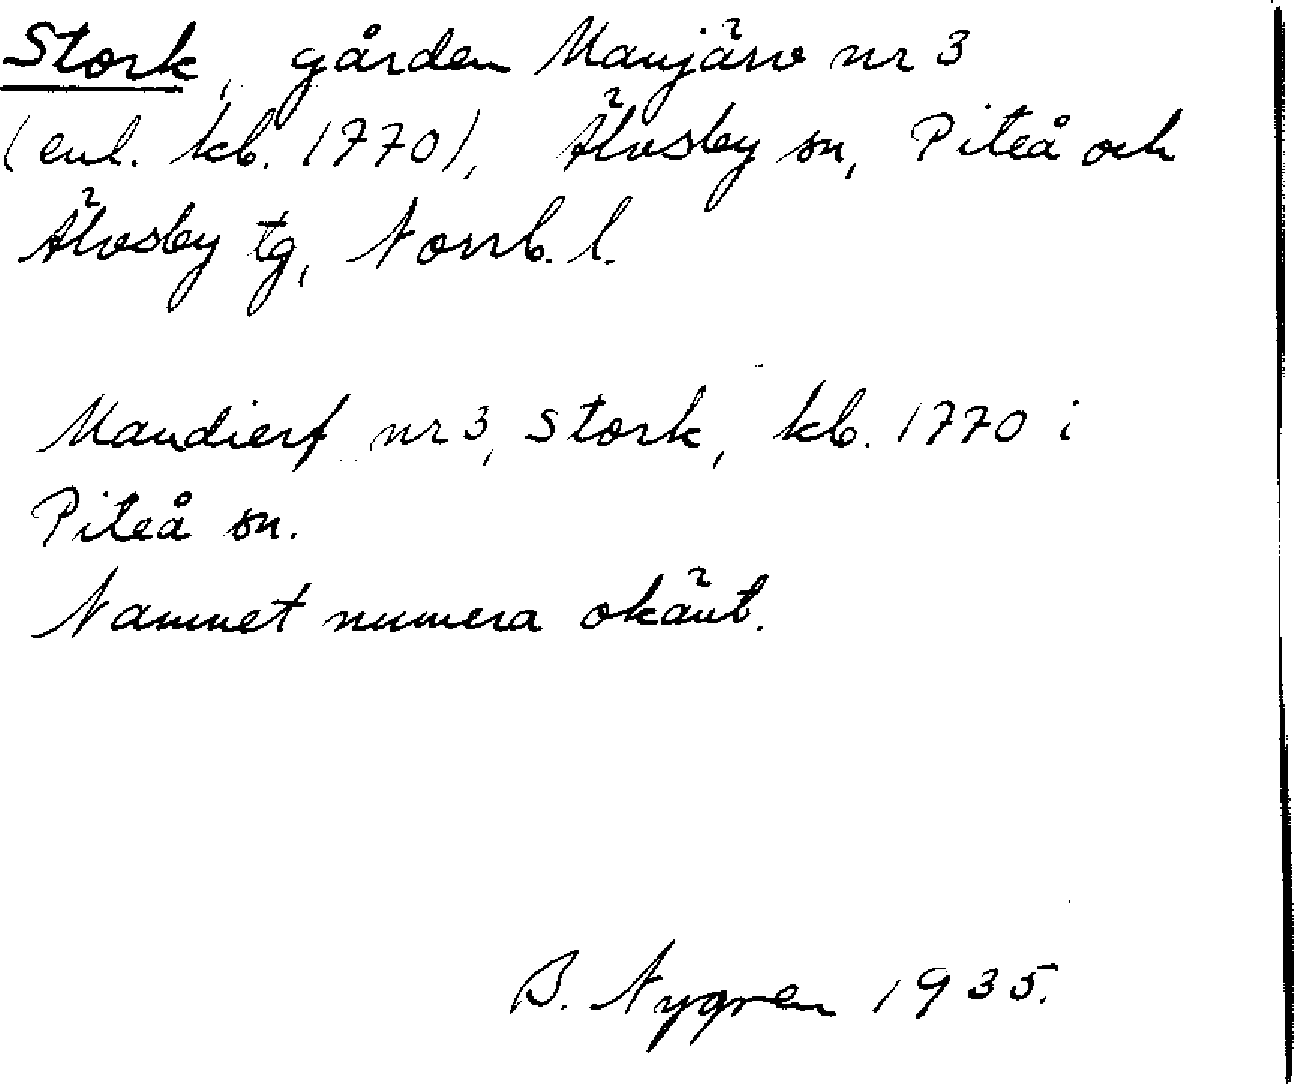 Stork, gården Manjärv nr 3
(enl. kb. 1770), Älvsby sn, Piteå och
Älvsby tg, Norrb. l.
Mandierf nr 3, Stork, kb. 1770 i
Piteå sn.
Namnet numera okänt.
B. Nygren 1935.